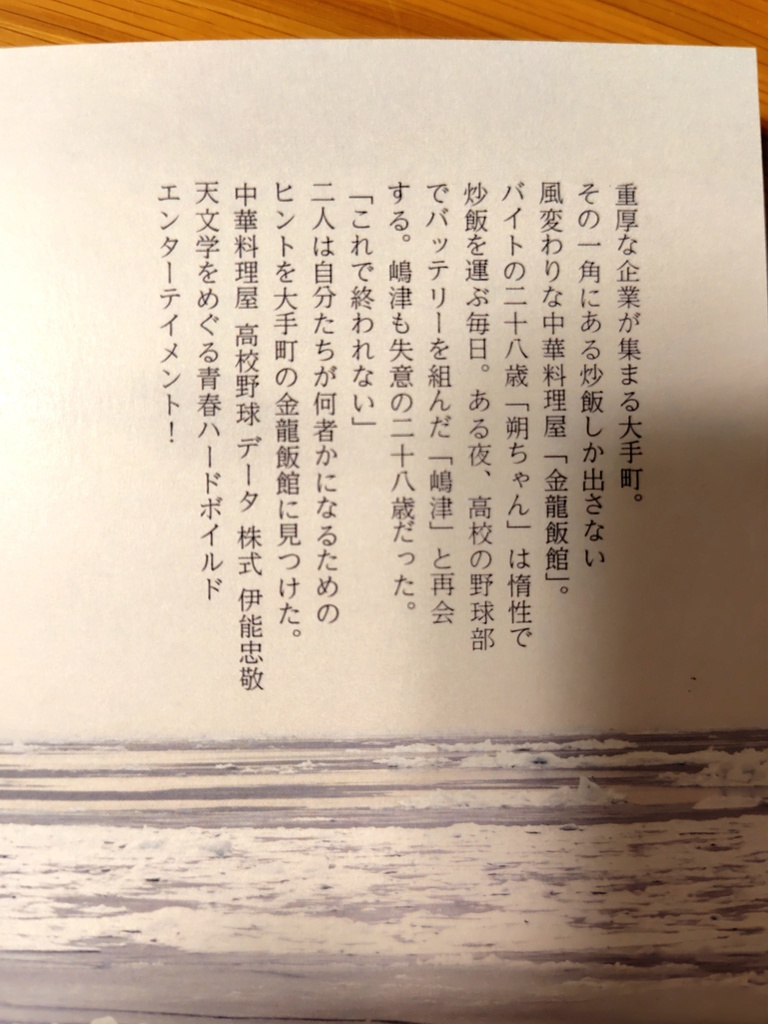 重厚な企業が集まる大手町。
その一角にある炒飯しか出さない
風変わりな中華料理屋「金龍飯館」。
バイトの二十八歳「朔ちゃん」は惰性で
炒飯を運ぶ毎日。ある夜、高校の野球部
でバッテリーを組んだ「嶋津」と再会
する。嶋津も失意の二十八歳だった。
「これで終われない」
二人は自分たちが何者かになるための
ヒントを大手町の金龍飯館に見つけた。
中華料理屋 高校野球 データ 株式 伊能忠敬
天文学をめぐる青春ハードボイルド
エンターテイメント！